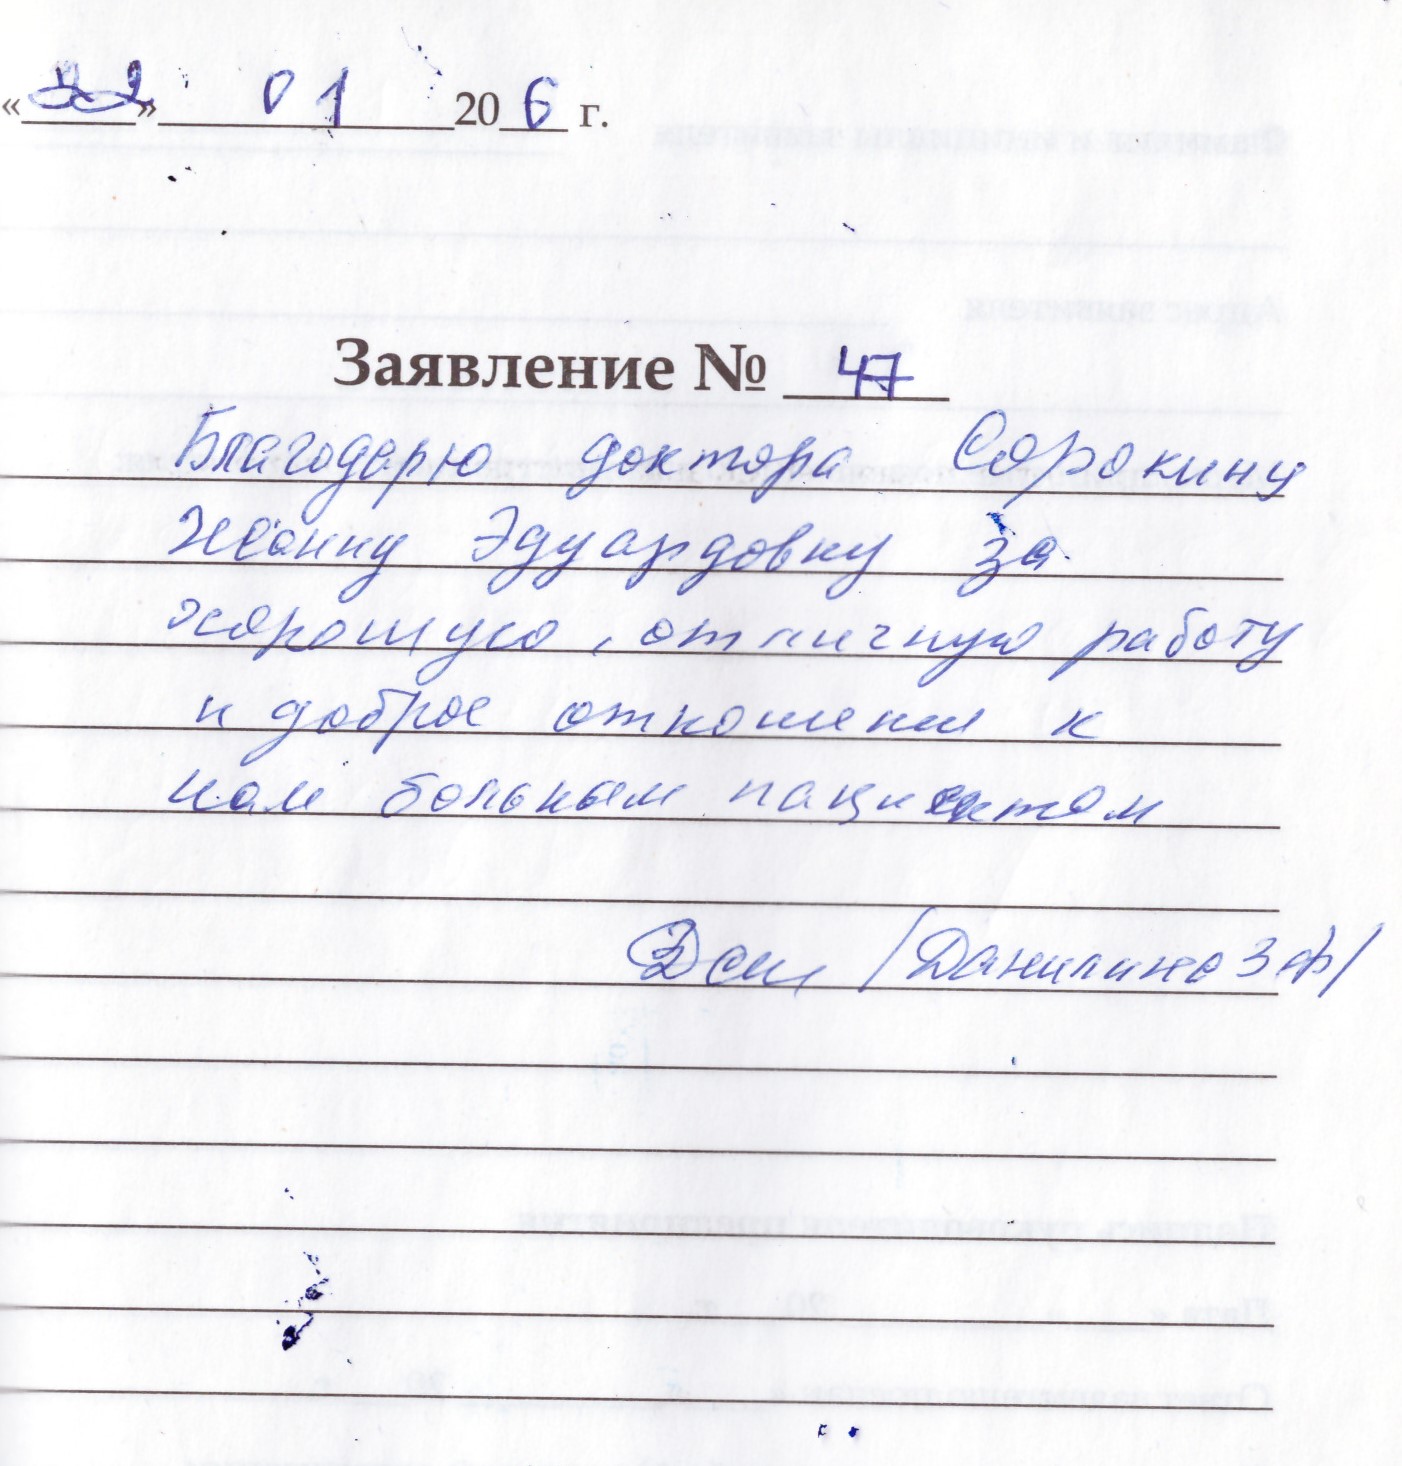 «22» 01 20 6 г.
Заявление № 47
Благодарю доктора Сорокину
Жанну Эдуардовну за
хорошую, отличную работу
и доброе отношение к
нам больным пациентам
/Данилина З Ф/